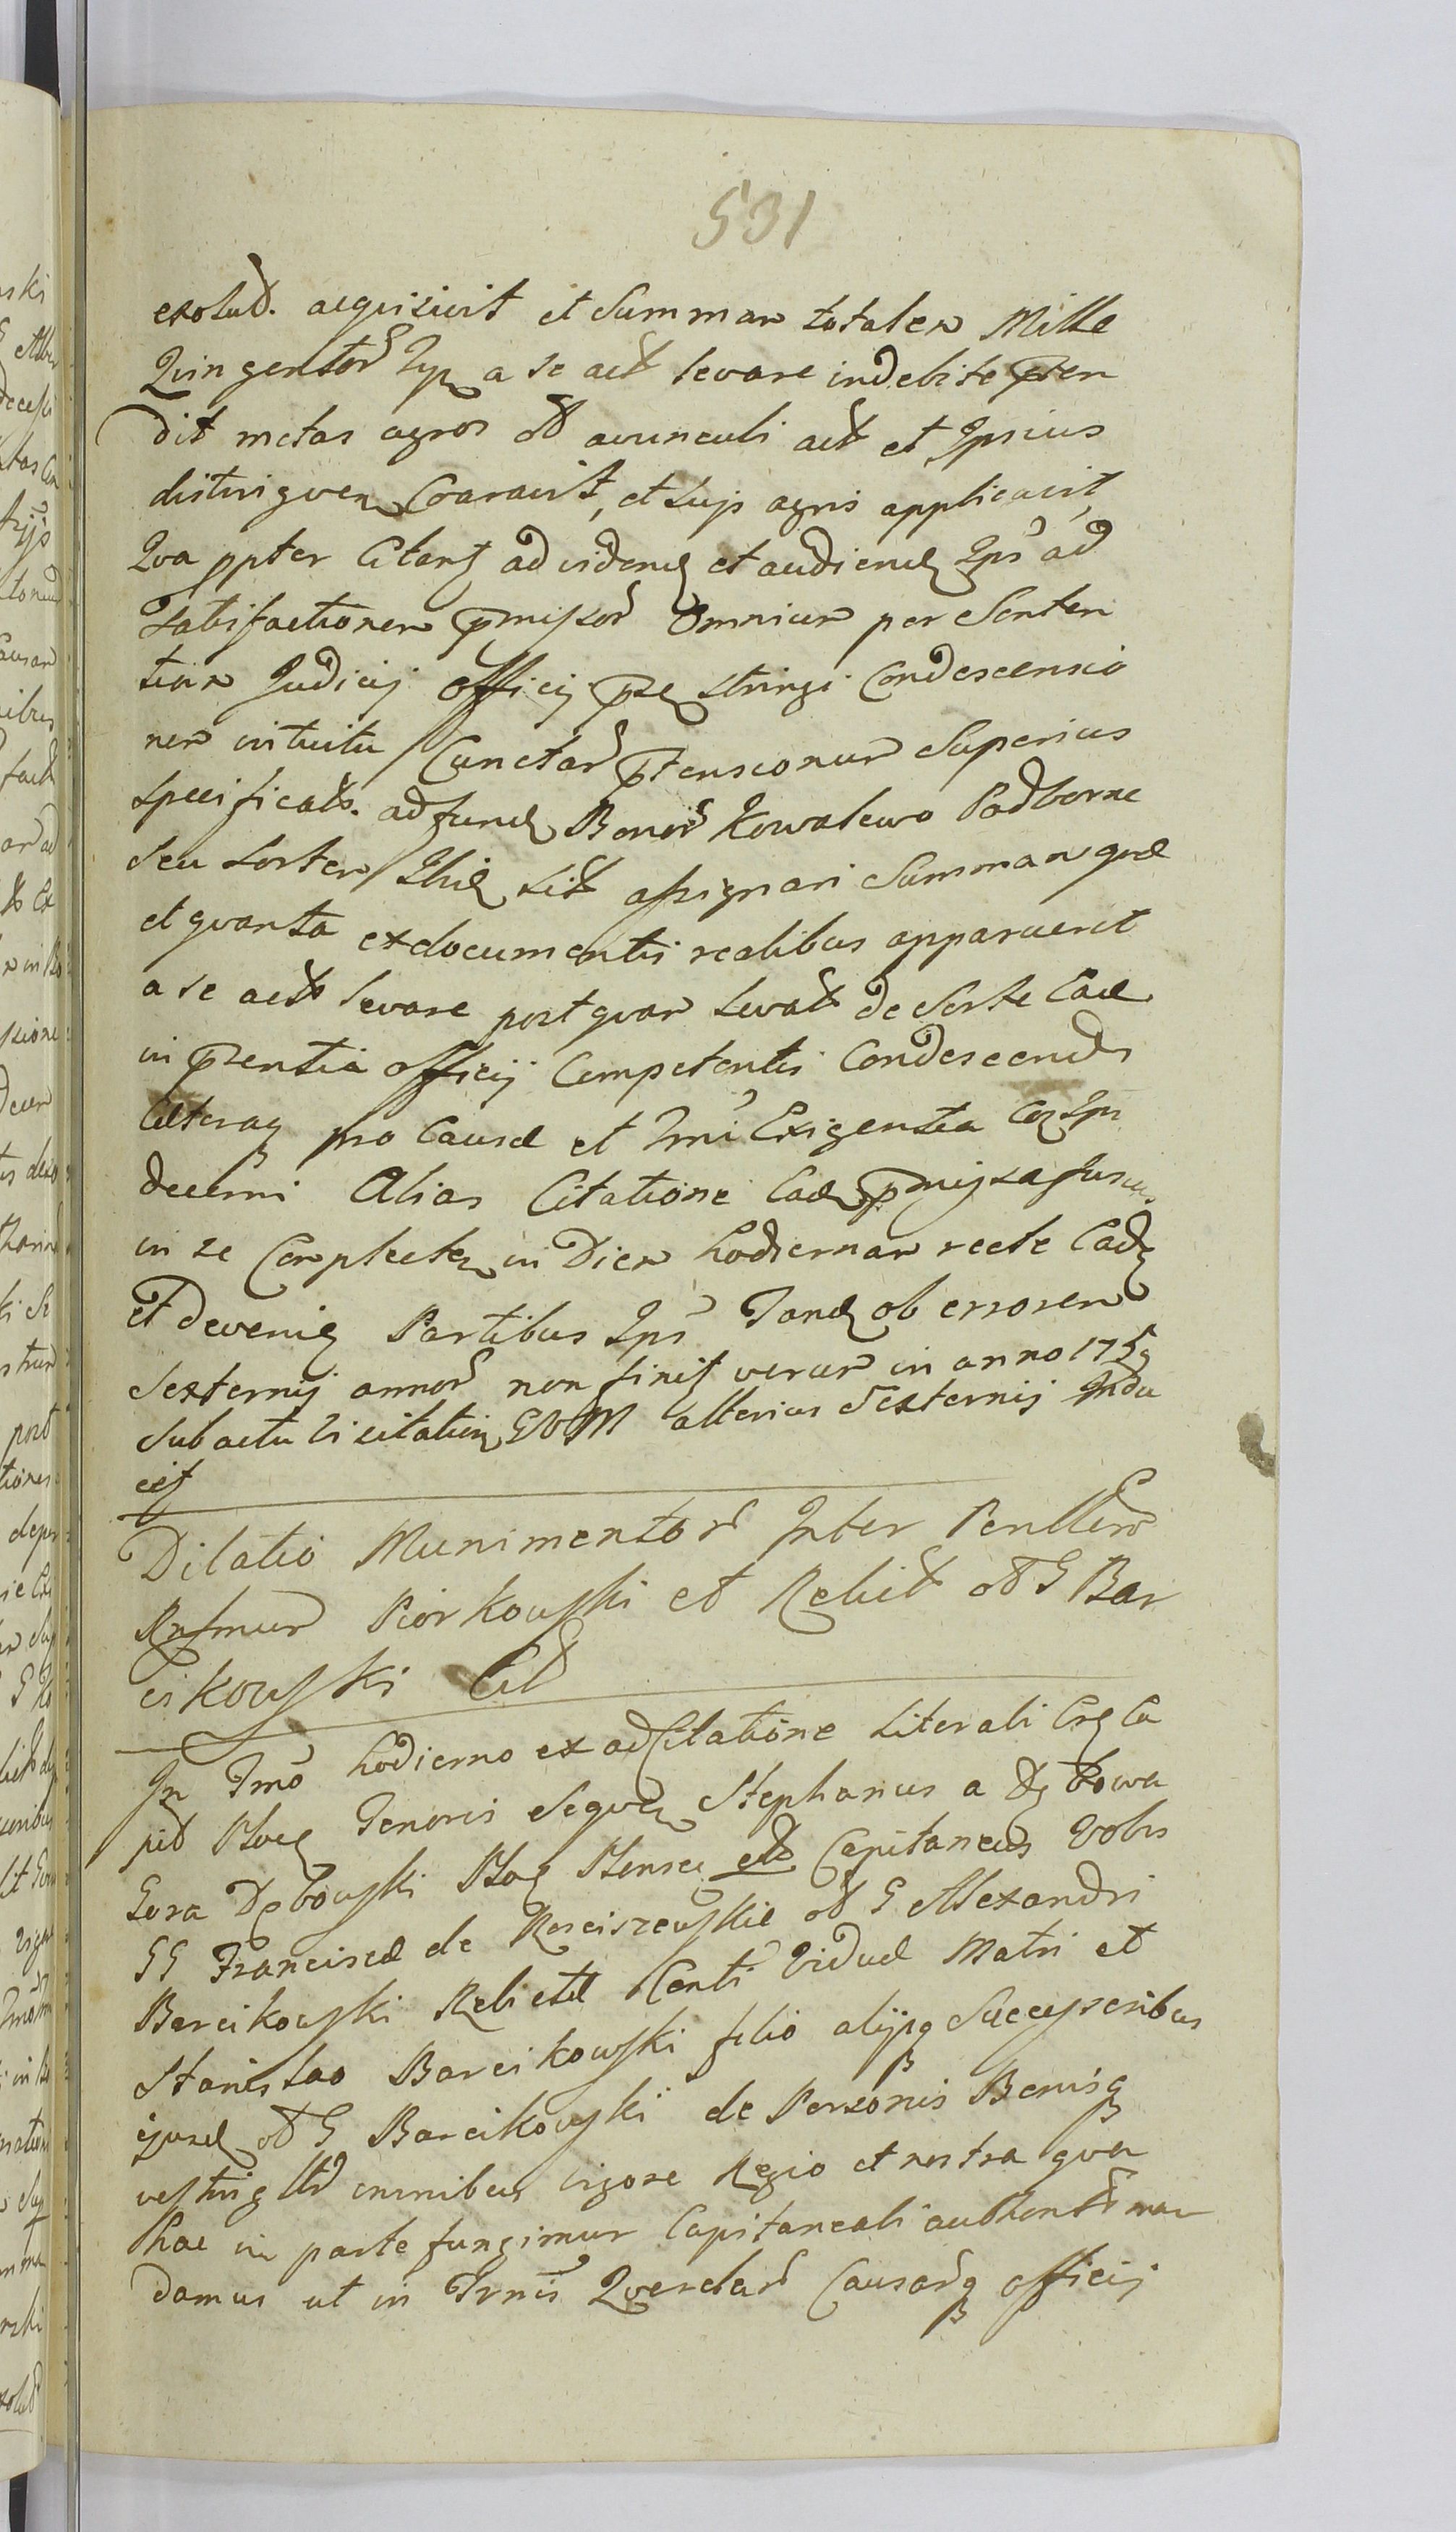 531
exolud. aequisivit et Summam totalem Mille
Quingentor a se act levare indebite pten
dit metas agros od avunculi act et Ipsius
distingven Coaravit, et Sujs agris applicavit,
Qva ppter Citarj ad videnq et audienq Ips ad
Satisfactionem pmissor omnium per Senten
tiam Judicij officij pse stringi Condescensio
nem intuitu Cunctar ptensionum Superius
Specificats. ad fundq Bonor Kowalewo Podborne
Seu Sortem Ibiq Sit assignari Summam qvae
et qvanta ex documentis realibus apparuerit
a se acto levare post qvam levat de Sorte Cad
in psentia officij Competentis Condescends
Caeteraq pro Causae et Tmi Exigentia Coq Ips
decerni Alias Citatione Cadq pmissa fusius
in se Complecten in Diem hodiernam recte Cadq
et deveniq Partibus Ips Tandq ob errorem
Sexternij annor non finij verum in anno 1759
Sub actu Visitation GVM alterius Sexternij Indu
cit
Dilatio Munimentor Inter Perillem
Rnsmum Piorkowski et Relict od G Bar
cikowski Cit
In Tmo hodierno ex ad Citatione Literali Crq Ca
pit Plocq Tenoris Seqven Stephanus a
Gora Dębowski Plocensis etc Capitaneus Vobis
GG Franciscae de Kosciszewskie od G Alexandri
Barcikowski Relictae Conti Viduae Matri et
Stanislao Barcikowski filio alijsq Successoribus
ejusdq od G Barcikowski de Personis Bonisq
vestris gltr omnibus vigore Regio et nostra qva
hac in parte fungimur Capitaneali authent man
damus ut in Trnis Qverelar Causarq officij